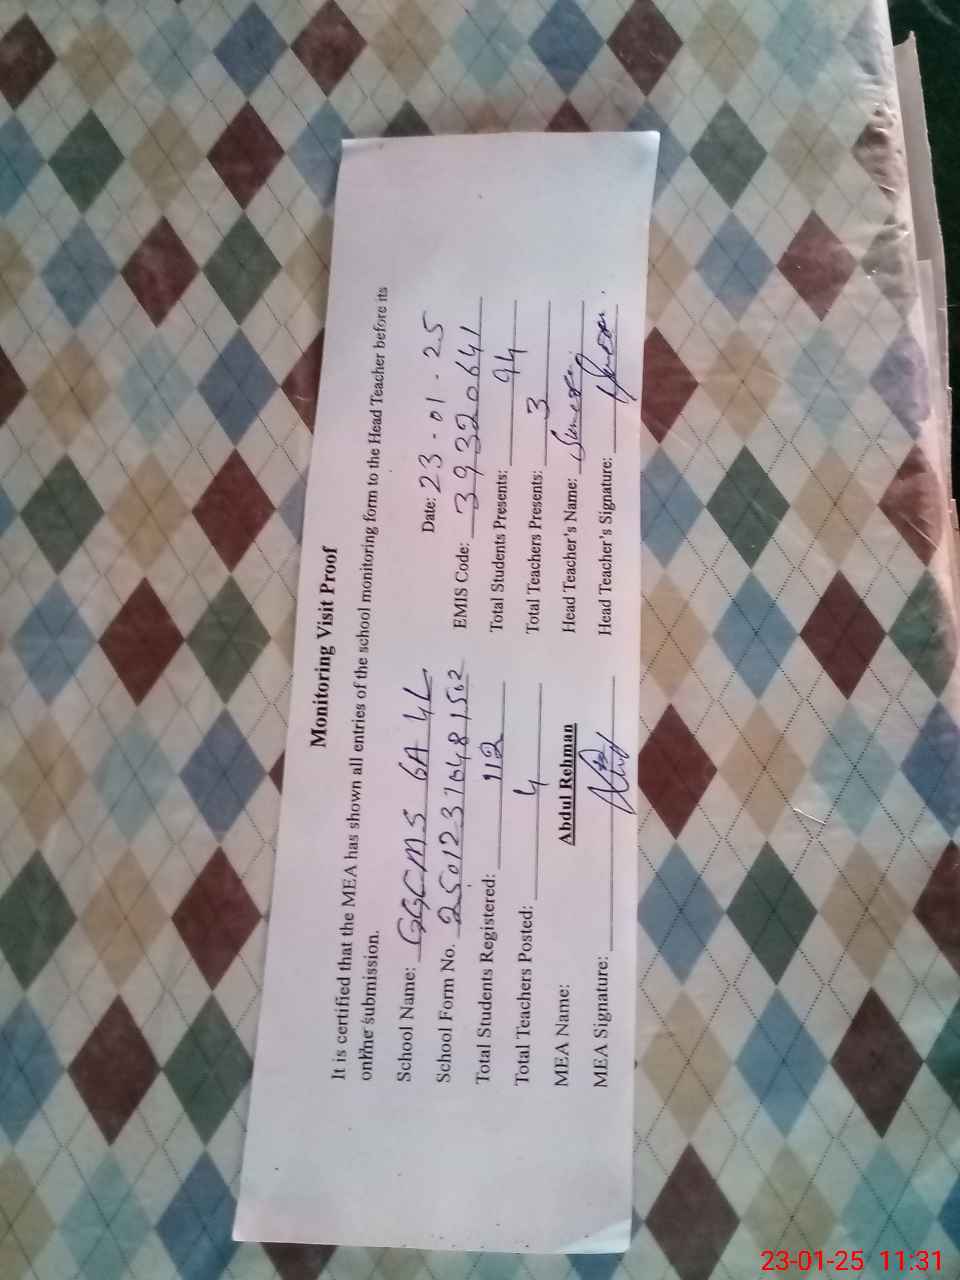 Monitoring Visit Proof
It is certified that the MEA has shown all entries of the school monitoring form to the Head Teacher before its
online submission.
Date: 23-01-25
School Name: GGCMS 6A 4L
EMIS Code: 39320641
School Form No. 25012310481502
Total Students Presents: 94
Total Students Registered: 112
Total Teachers Presents: 3
Total Teachers Posted: 4
Head Teacher's Name:
MEA Name: Abdul Rehman
Head Teacher's Signature:
MEA Signature:
23-01-25 11:31